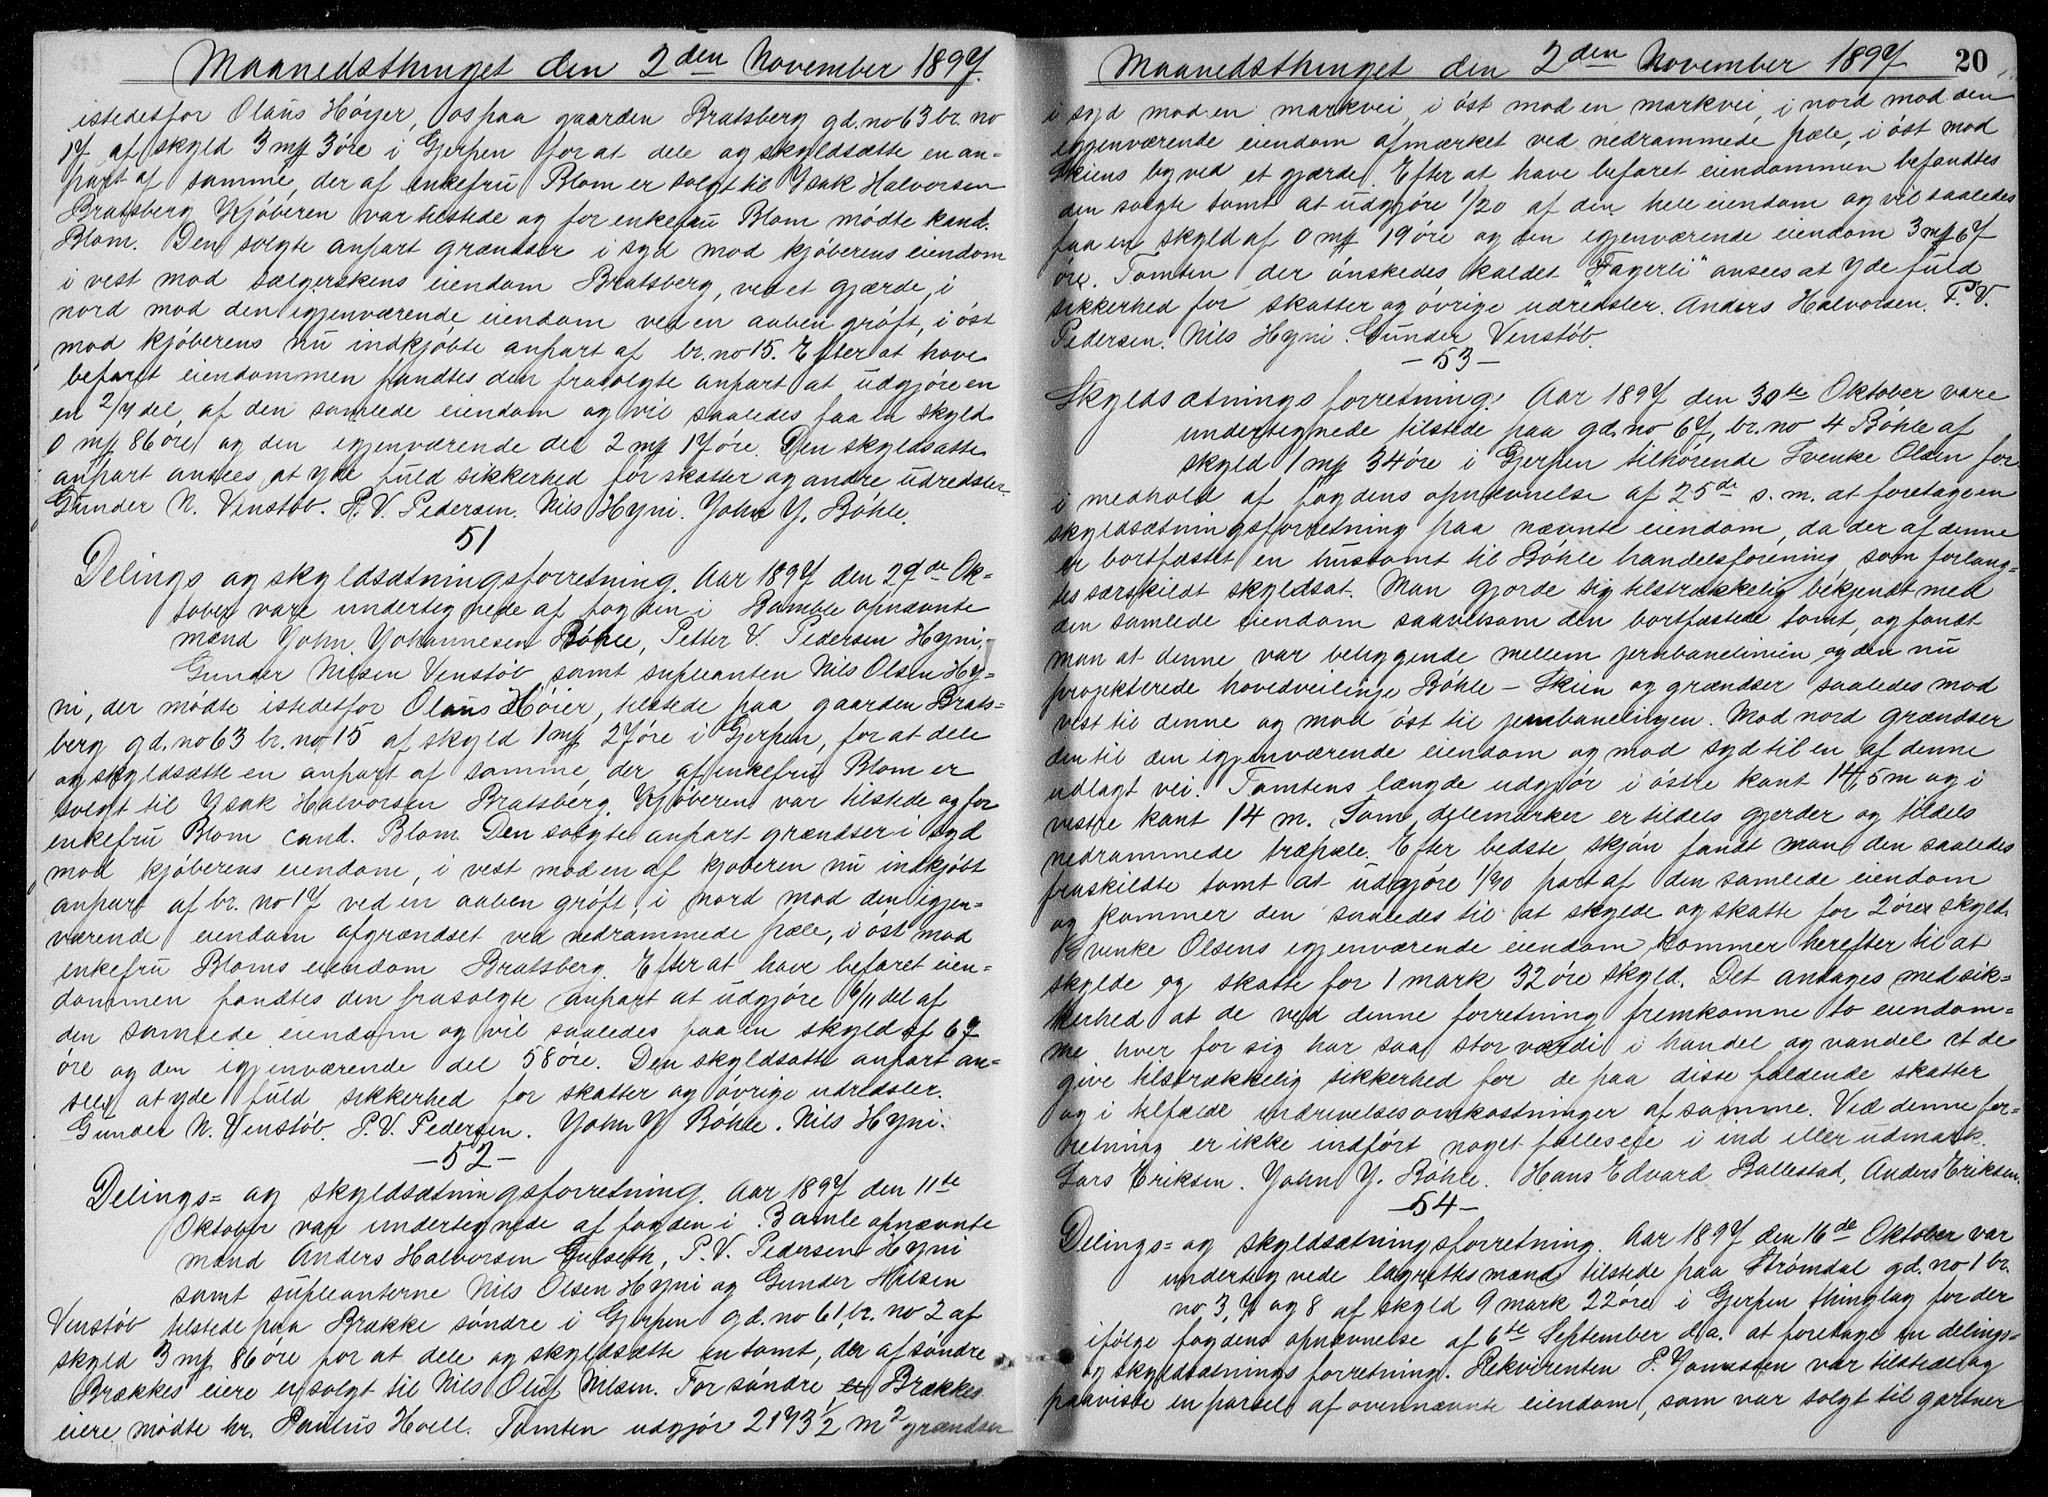 Maanedsthinget den 2den November 1897.
istedetfor Olaus Höyer, os paa gaarden Bratsberg gd. no 63 br. no
17 af skyld 3 mk 3 öre i Gjerpen for at dele og skyldsætte en an-
part af samme, der af enkefru Blom er solgt til Ysak Halvorsen
Bratsberg. Kjöberen var tilstede og for enkefru Blom mödte kand.
Blom. Den solgte anpart grændser i syd mod kjöberens eiendom
i vest mod sælgerskens eiendom Bratsberg, ved et gjærde, i
nord mod den igjenværende eiendom ved en aaben gröft, i öst
mod kjöberens nu indkjöbte anpart af br. no 15. Efter at have
befaret eiendommen fandtes den frasolgte anpart at udgjöre en
en 2/7 del, af den samlede eiendom og vil saaledes faa en skyld
0 mk 86 öre og den igjenværende del 2 mk 17 öre. Den skyldsatte
anpart ansees at yde fuld sikkerhed for skatter og andre udredsler.
Gunder N. Venstöb. P. V. Pedersen. Nils Hyni. John Y. Böhle.
51
Delings og skyldsætningsforretning. Aar 1897 den 29de Ok-
tober vare undertegnede af fogden i Bamble opnævnte
mænd John Yohannesen Böhle, Petter V. Pedersen Hyni,
Gunder Nilsen Venstöb samt supleanten Nils Olsen Hy-
ni, der mödte istedetfor Olaus Höier, tilstede paa gaarden Brats-
berg gd. no 63 br. no 15 af skyld 1 mk 27 öre i Gjerpen, for at dele
og skyldsætte en anpart af samme, der af enkefru Blom er
solgt til Ysak Halvorsen Bratsberg. Kjöberen var tilstede og for
enkefru Blom cand. Blom. Den solgte anpart grændser i syd
mod kjöberens eiendom, i vest mod en af kjöberen nu indkjöbt
anpart af br. no 17 ved en aaben gröft, i nord mod den igjen-
værende eiendom afgrændset ved nedrammede pæle, i öst mod
enkefru Bloms eiendom Bratsberg. Efter at have befaret eien-
dommen fandtes den frasolgte anpart at udgjöre 6/11 del af
den samlede eiendom og vil saaledes faa en skyld af 69
öre og den igjenværende del 58 öre. Den skyldsatte anpart an-
sees at yde fuld sikkerhed for skatter og övrige udredsler.
Gunder N. Venstöb. P. V. Pedersen. John Y Böhle. Nils Hyni.
-52-
Delings= og skyldsætningsforretning. Aar 1897 den 11te
Oktober var undertegnede af fogden i Bamle opnævnte
mænd Anders Halvorsen Gulseth, P. V. Pedersen Hyni
samt supleanterne Nils Olsen Hyni og Gunder Nilsen
Venstöb tilstede paa Brække söndre i Gjerpen gd. no 61, br. no 2 af
skyld 3 mk 86 öre for at dele og skyldsætte en tomt, der af söndre
Brækkes eiere er solgt til Nils Oluf Nilsen. For söndre Brækkes
eiere mödte hr. Paulus Hoell. Tomten udgjör 2173 1/2 m2 grændser
Maanedsthinget den 2den November 1897 20
i syd mod en markvei, i öst mod en markvei, i nord mod den
igjenværende eiendom afmærket ved nedrammede pæle, i öst mod
Skiens by ved et gjærde. Efter at have befaret eiendommen befandtes
den solgte tomt at udgjöre 1/20 af den hele eiendom og vil saaledes
faa en skyld af 0 mk 19 öre og den igjenværende eiendom 3 mk 67
öre. Tomten, der önskedes kaldet "Fagerli" ansees at yde fuld
sikkerhed for skatter og övrige udredsler. Anders Halvorsen. P. V.
Pedersen. Nils Hyni. Gunder Venstöb.
-53-
Skyldsætningsforretning. Aar 1897 den 30te Oktober vare
undertegnede tilstede paa gd. no 67, br. no 4 Böhle af
skyld 1 mk 34 öre i Gjerpen tilhörende Svenke Olsen for
i medhold af fogdens opnævnelse af 25de s. m. at foretage en
skyldsætningsforretning paa nævnte eiendom, da der af denne
er bortfæstet en hustomt til Böhle handelsforening som forlang-
tes særskildt skyldsat. Man gjorde sig tilstrækkelig bekjendt med
den samlede eiendom saavelsom den bortfæstede tomt, og fandt
man at denne var beliggende mellem jernbanelinien og den nu
projekterede hovedveilinje Böhle - Skien og grændser saaledes mod
vest til denne og mod öst til jernbanelinjen. Mod nord grændser
den til den igjenværende eiendom og mod syd til en af denne
udlagt vei. Tomtens længde udgjör i östre kant 14,5 m og i
vestre kant 14 m. Som delemærker er tildels gjerder og tildels
nedrammede træpæle. Efter bedste skjön fandt man den saaledes
fraskildte tomt at udgjöre 1/90 part af den samlede eiendom
og kommer den saaledes til at skylde og skatte for 2 örer skyld.
Svenke Olsens igjenværende eiendom kommer herefter til at
skylde og skatte for 1 mark 32 öre skyld. Det antages med sik-
kerhed at de ved denne forretning fremkomne to eiendom-
me hver for sig har saa stor værdi i handel og vandel at de
give tilstrækkelig sikkerhed for de paa disse faldende skatter
og i tilfælde inddrivelsesomkostninger af samme. Ved denne for-
retning er ikke indfört noget fælleseie i ind eller udmark.
Lars Eriksen. John Y. Böhle. Hans Edvard Ballestad, Anders Eriksen.
-54-
Delings= og skyldsætningsforretning. Aar 1897 den 16de Oktober var
undertegnede lagrettesmænd tilstede paa Strömdal gd. no 1 br.
no 3, 7 og 8 af skyld 9 mark 22 öre i Gjerpen thinglag for der
ifölge fogdens opnævnelse af 6te September d.a. at foretage en delings-
og skyldsætnings forretning. Rekvirenten P. Jonassen var tilstede og
paaviste en parsel af ovennævnte eiendom, som var solgt til gartner